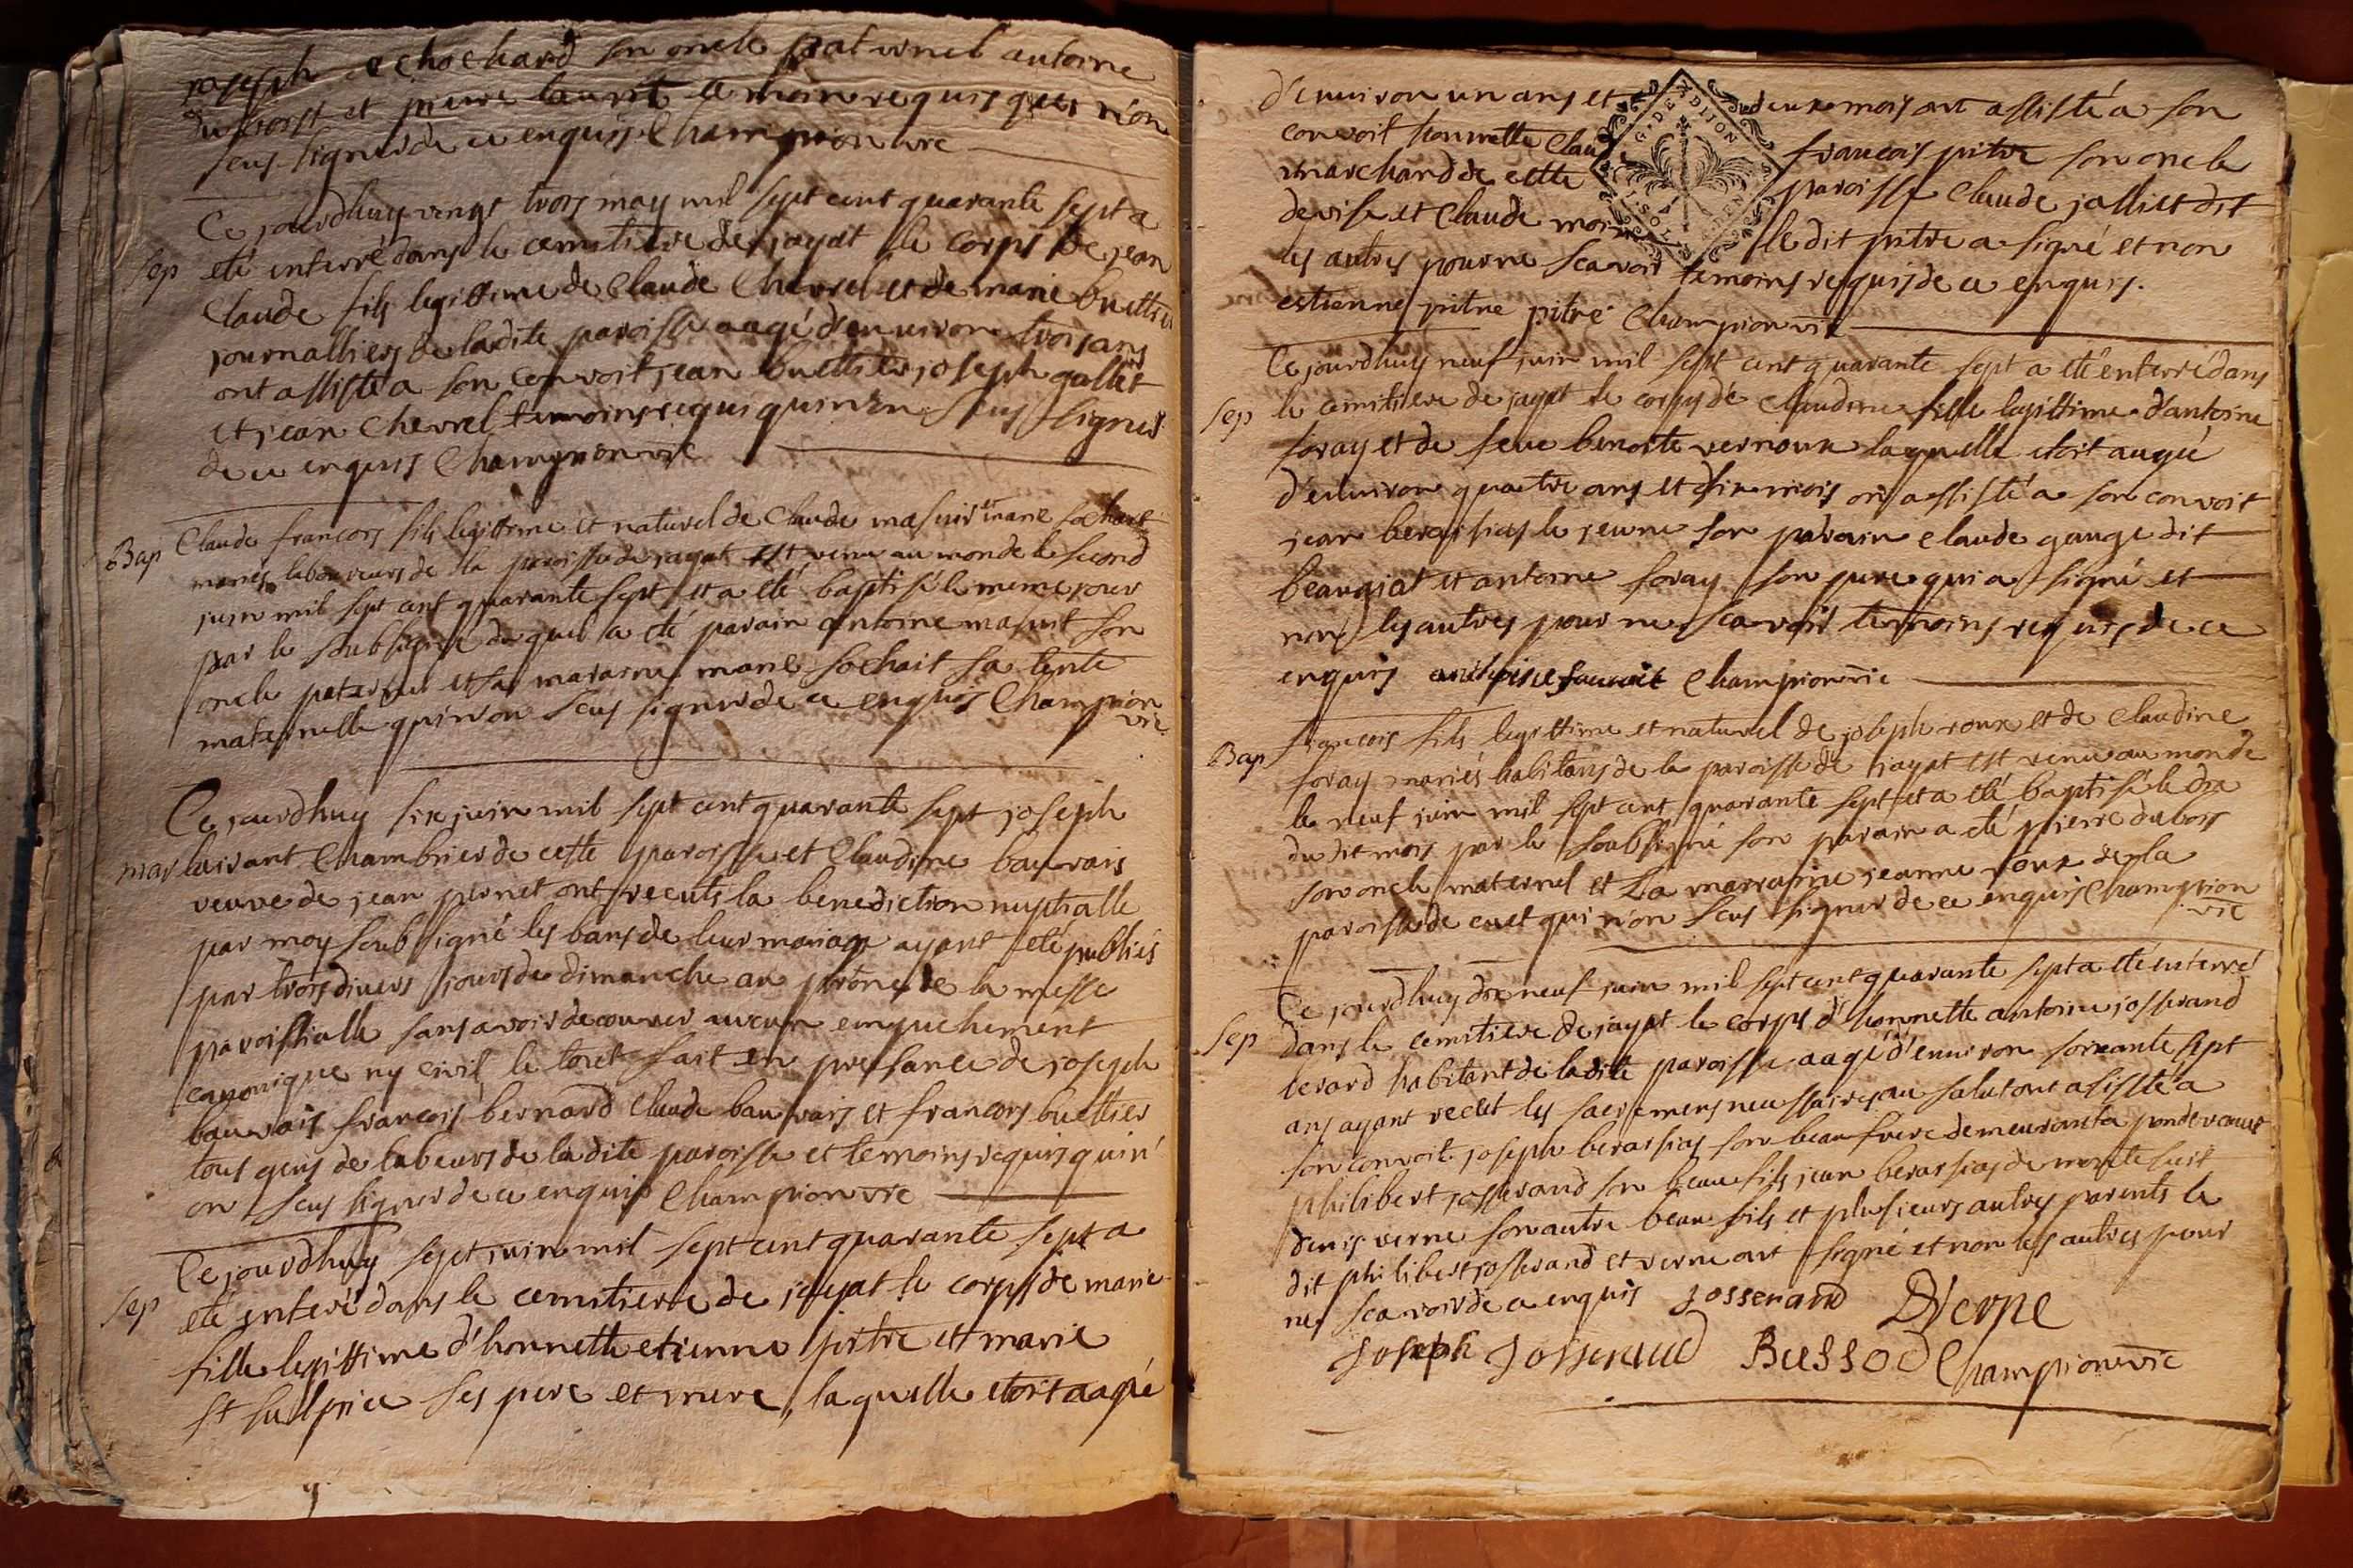 joseph chochard son oncle paternel antoine
du borst et pierre laurent temoin requis qui n'on
seus signer de ce enquis Champion vic
Ce jourdhuy vingt trois may mil sept cent quarante sept a
Sep eté enterré dans le cemitiere de jayat le corps de jean
Claude fils legittime de Claude Chevrel et de marie buettier
journalliers de ladite paroisse aagé d'environ trois ans
ont assisté a son convoit jean buettier joseph gallet
et jean Chevrel temoins requi qui n'on seus signer
de ce enquis Champion vic
Bap Claude francois fils legittime et naturel de Claude masuir et marie sochait
mariés laboureurs de la paroisse de jayat est venu au monde le second
juin mil sept cent quarante sept et a eté baptisé le meme jour
par le soubsigné duquel a eté parain antoine masuit son
oncle paternel et sa maraine marie sochait sa tente
maternelle qui n'on seus signer de ce enquis Champion
vic
Ce jourdhuy six juin mil sept cent quarante sept joseph
mar laurant Chambrier de cette paroisse et Claudine bauvais
veuve de jean pernet ont receuts la benediction nuptialle
par moy soubsigné les bans de leur mariage ayant eté publiés
par trois divers jours de dimanche au prône de la messe
paroissialle sans avoir decouver aucun empechement
canonique ny civil le tout fait en presance de joseph
bauvais francois bernard Claude bauvais et francois buettier
tous gens de labeurs de ladite paroisse et temoins requis qui n'
on seus signer de ce enquis Champion vic
Ce jourdhuy sept juin mil sept cent quarante sept a
Sep eté enteré dans le cemitierre de jayat le corps de marie
fille legittime d'honnette etienne pitre et marie
st sulpice ses pere et mere, laquelle etoit aagée
d'environ un ans et deux mois ont assisté a son
convoit honnette Clau francois pitre son oncle
marchand de cette paroisse Claude jalliet dit
devise et Claude moin le dit pitre a signé et non
les autres pour ne scavoir temoins requis de ce enquis.
estienne pitre pitre Champion vic
Ce jourdhuy neuf juin mil sept cent quarante sept a eté enterré dans
Sep le cemitiere de jayat le corps de Claudine fille legittime d'antoine
foray et de feue benoite vernoux laquelle etoit aagée
d'environ quattre ans et dix mois on assisté a son convoit
jean berassias le jeune son parain claude gauge dit
beaugiat et antoine foray son pere qui a signé et
non les autres pour ne scavoir temoins requis de ce
enquis antoine fouroit Champion vic
Bap francois fils legittime et naturel de joseph roux et de Claudine
foray mariés habitans de la paroisse de jayat est venu au monde
le neuf juin mil sept cent quarante sept et a eté baptisé le dix
du dit mois par le soubsigné son parain a eté pierre dubois
son oncle maternel et La marraine jeanne roux de la
paroisse de cuet qui n'on seus signer de ce enquis Champion
vic
Ce jourdhuy dix neuf juin mil sept cent quarante sept a eté enterré
Sep dans le cemitiere de jayat le corps d'honnette antoine josserand
berard habitant de ladite paroisse aagé d'environ soixante sept
ans ayant receut les sacremens necessaires au salut ont assisté a
son convoit joseph berassias son beau frere demeurant a pondevaux
philibert josserand son beau fils jean berassias de
denis verne son autre beau fils et plusieurs autres parents le
dit philibert josserand et verne ont signé et non les autres pour
ne scavoir de ce enquis Josserand DVerne
Joseph Josserand Bussod Champion vic